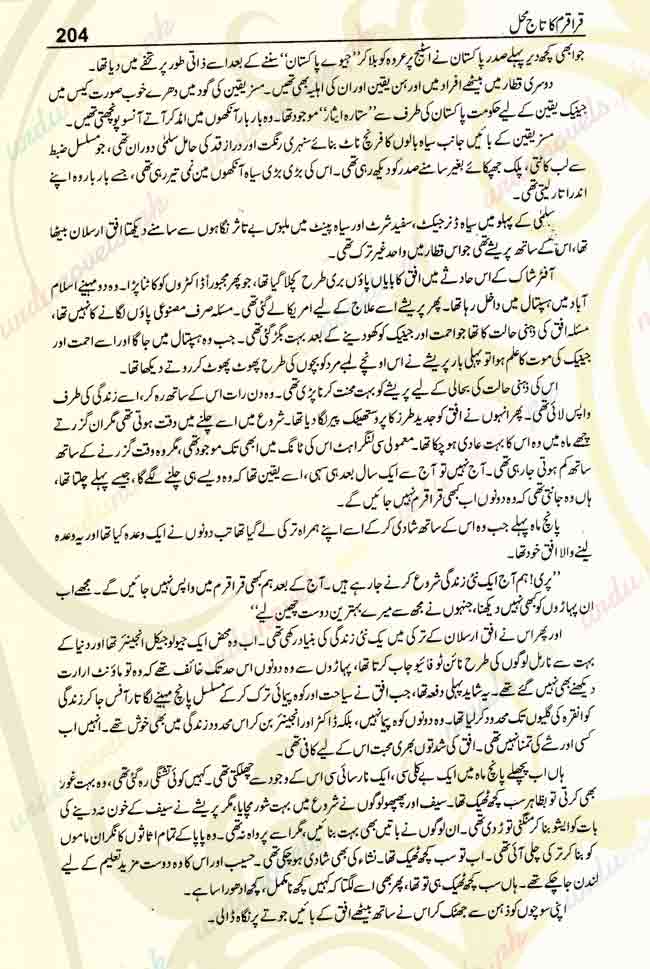 قراقرم کا تاج محل
204
جو ابھی کچھ دیر پہلے صدر پاکستان نے اسٹیج پر عروہ کو بلا کر ’’جیوے پاکستان‘‘ سننے کے بعد اسے ذاتی طور پر تحفے میں دیا تھا۔
دوسری قطار میں بیٹھے افراد میں اور ہن یقین اور ان کی اہلیہ بھی تھیں۔ مسز یقین کی گود میں دھرے خوب صورت کیس میں
جینیک یقین کے لیے حکومت پاکستان کی طرف سے ’’ستارہ ایثار‘‘ موجود تھا۔ وہ بار بار آنکھوں میں امڈ کر آتے آنسو پونچھتی تھیں۔
مسز یقین کے بائیں جانب سیاہ بالوں کا فرنچ ناٹ بنائے سنہری رنگت اور دراز قد کی حامل سلمیٰ دوران تھی، جو مسلسل ضبط
سے لب کاٹتی، پلک جھپکائے بغیر سامنے صدر کو دیکھ رہی تھی۔ اس کی بڑی بڑی سیاہ آنکھوں میں نمی تیر رہی تھی، جسے بار بار وہ اپنے
اندر اتار لیتی تھی۔
سلمیٰ کے پہلو میں سیاہ ڈنر جیکٹ، سفید شرٹ اور سیاہ پینٹ میں ملبوس بے تاثر نگاہوں سے سامنے دیکھتا افق ارسلان بیٹھا
تھا، اس کے ساتھ پریشے تھی جو اس قطار میں واحد غیر ترک تھی۔
آفٹر شاک کے اس حادثے میں افق کا بایاں پاؤں بری طرح کچلا گیا تھا، جو پھر مجبوراً ڈاکٹروں کو کاٹنا پڑا۔ وہ دو مہینے اسلام
آباد میں ہسپتال میں داخل رہا تھا۔ پھر پریشے اسے علاج کے لیے امریکا لے گئی تھی۔ مسئلہ صرف مصنوعی پاؤں لگانے کا نہیں تھا،
مسئلہ افق کی ذہنی حالت کا تھا جو احمت اور جینیک کو کھو دینے کے بعد بہت بگڑ گئی تھی۔ جب وہ ہسپتال میں جاگا اور اسے احمت اور
جینیک کی موت کا علم ہوا تو پہلی بار پریشے نے اس اونچے لمبے مرد کو بچوں کی طرح پھوٹ پھوٹ کر روتے دیکھا تھا۔
اس کی ذہنی حالت کی بحالی کے لیے پریشے کو بہت محنت کرنا پڑی تھی۔ وہ دن رات اس کے ساتھ رہ کر، اسے زندگی کی طرف
واپس لائی تھی۔ پھر انہوں نے افق کو جدید طرز کا پروستھیٹک پیر لگا دیا تھا۔ شروع میں اسے چلنے میں دقت ہوتی تھی مگر ان گزرتے
چھے ماہ میں وہ اس کا بہت عادی ہو چکا تھا۔ معمولی سی لنگراہٹ اس کی ٹانگ میں ابھی تک موجود تھی، مگر وہ وقت گزرنے کے ساتھ
ساتھ کم ہوتی جا رہی تھی۔ آج نہیں تو آج سے ایک سال بعد ہی سہی، اسے یقین تھا کہ وہ ویسے ہی چلنے لگے گا، جیسے پہلے چلتا تھا،
ہاں وہ جانتی تھی کہ وہ دونوں اب کبھی قراقرم نہیں جائیں گے۔
پانچ ماہ پہلے جب وہ اس کے ساتھ شادی کر کے اسے اپنے ہمراہ ترکی لے گیا تھا تب دونوں نے ایک وعدہ کیا تھا اور یہ وعدہ
لینے والا افق خود تھا۔
’’پری! ہم آج ایک نئی زندگی شروع کرنے جا رہے ہیں۔ آج کے بعد ہم کبھی قراقرم میں واپس نہیں جائیں گے۔ مجھے اب
ان پہاڑوں کو کبھی نہیں دیکھنا، جنہوں نے مجھ سے میرے بہترین دوست چھین لیے‘‘
اور پھر اس نے افق ارسلان کے ترکی میں یک نئی زندگی کی بنیاد رکھی تھی۔ اب وہ محض ایک جیولوجیکل انجینئر تھا اور دنیا کے
بہت سے نارمل لوگوں کی طرح نائن ٹو فائیو جاب کرتا تھا، پہاڑوں سے وہ دونوں اس حد تک خائف تھے کہ وہ تو ماؤنٹ ارارت
دیکھنے بھی نہیں گئے تھے۔ یہ شاید پہلی دفعہ تھا، جب افق نے سیاحت اور کوہ پیمائی ترک کر کے مسلسل پانچ مہینے لگاتار آفس جا کر زندگی
کو انقرہ کی گلیوں تک محدود کر لیا تھا۔ وہ دونوں کوہ پیما نہیں، بلکہ ڈاکٹر اور انجینئر بن کر اس محدود زندگی میں بھی خوش تھے۔ انہیں اب
کسی اور شے کی تمنا نہیں تھی۔ افق کی شدتوں بھری محبت اس کے لیے کافی تھی۔
ہاں اب پچھلے پانچ ماہ میں ایک بے کلی سی، ایک نارسائی سی اس کے وجود سے چھلکتی تھی۔ کہیں کوئی تشنگی رہ گئی تھی، وہ بہت غور
بھی کرتی تو بظاہر سب کچھ ٹھیک تھا۔ سیف اور پھپھو لوگوں نے شروع میں بہت شور مچایا، مگر پریشے نے سیف کے خون نہ دینے کی
بات کو ایشو بنا کر منگنی توڑ دی تھی۔ ان لوگوں نے باتیں بھی بہت بنائیں، مگر اسے پرواہ نہ تھی۔ وہ پاپا کے تمام اثاثوں کا نگران ماموں
کو بنا کر ترکی چلی آئی تھی۔ اب تو سب کچھ ٹھیک تھا۔ نشاء کی بھی شادی ہو چکی تھی۔ حسیب اور اس کا وہ دوست مزید تعلیم کے لیے
لندن جا چکے تھے۔ ہاں سب کچھ ٹھیک ہی تو تھا، پھر بھی اسے لگتا کہ کہیں کچھ نامکمل، کچھ ادھورا سا ہے۔
اپنی سوچوں کو ذہن سے جھٹک کر اس نے ساتھ بیٹھے افق کے بائیں جوتے پر نگاہ ڈالی۔